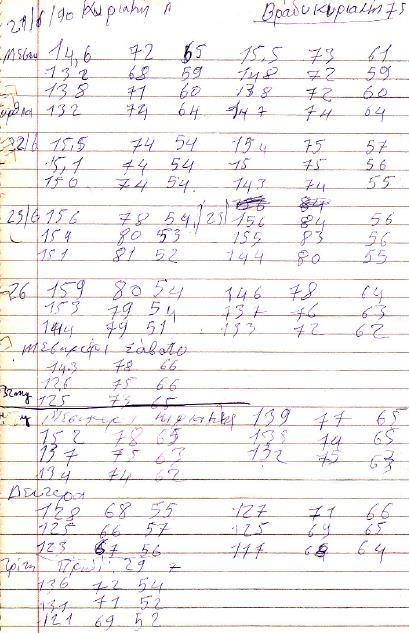 21/6/90 Κυριακη Π Βράδυ κυριακη 75
Μεσημ 14,6 72 65 15.5 73 61
132 68 59 148 72 59
138 71 60 138 72 60
132 74 64 147 74 64
22/6 15.5 74 54 154 75 57
15,1 74 54 15 75 56
150 74 54 143 74 55
25/6 156 78 54 25 156 84 56
154 80 53 155 83 56
151 81 52 144 80 55
26 159 80 54 146 78 64
153 79 54 137 76 63
144 79 51 133 72 62
Μεσημερι Σάβατο
143 78 66
126 75 66
125 73 65
Κυριακη 139 77 65
152 78 65 139 74 65
137 75 63 132 75 63
134 74 62
Δευτερα
128 68 55 127 71 66
125 66 57 125 69 65
123 67 56 117 68 64
Τρίτη Πρωί 29
136 72 54
131 71 52
121 69 52